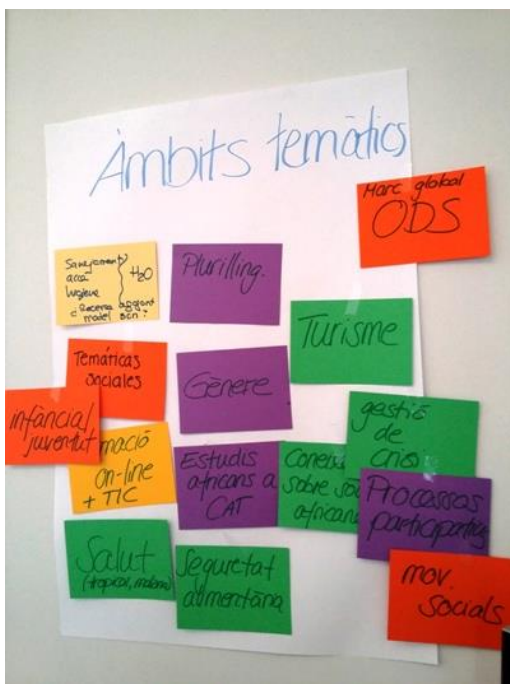 Àmbits temàtics
Marc global
ODS
Sanejament
aixa
higiene
H2O
model scn?
Plurilling.
Turisme
Temáticas
sociales
Gènere
infància/
juventut
mació
on-line
+ TIC
Estudis
africans a
CAT
Coneix
sobre soc
africanes
gestió
de
crisi
Processos
participatius
Salut
(tropical, materna)
Seguretat
alimentària
mov.
socials